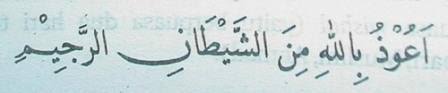 اَعُوْذُ بِاللهِ مِنَ الشَّيْطَانِ الرَّجِيْمِ